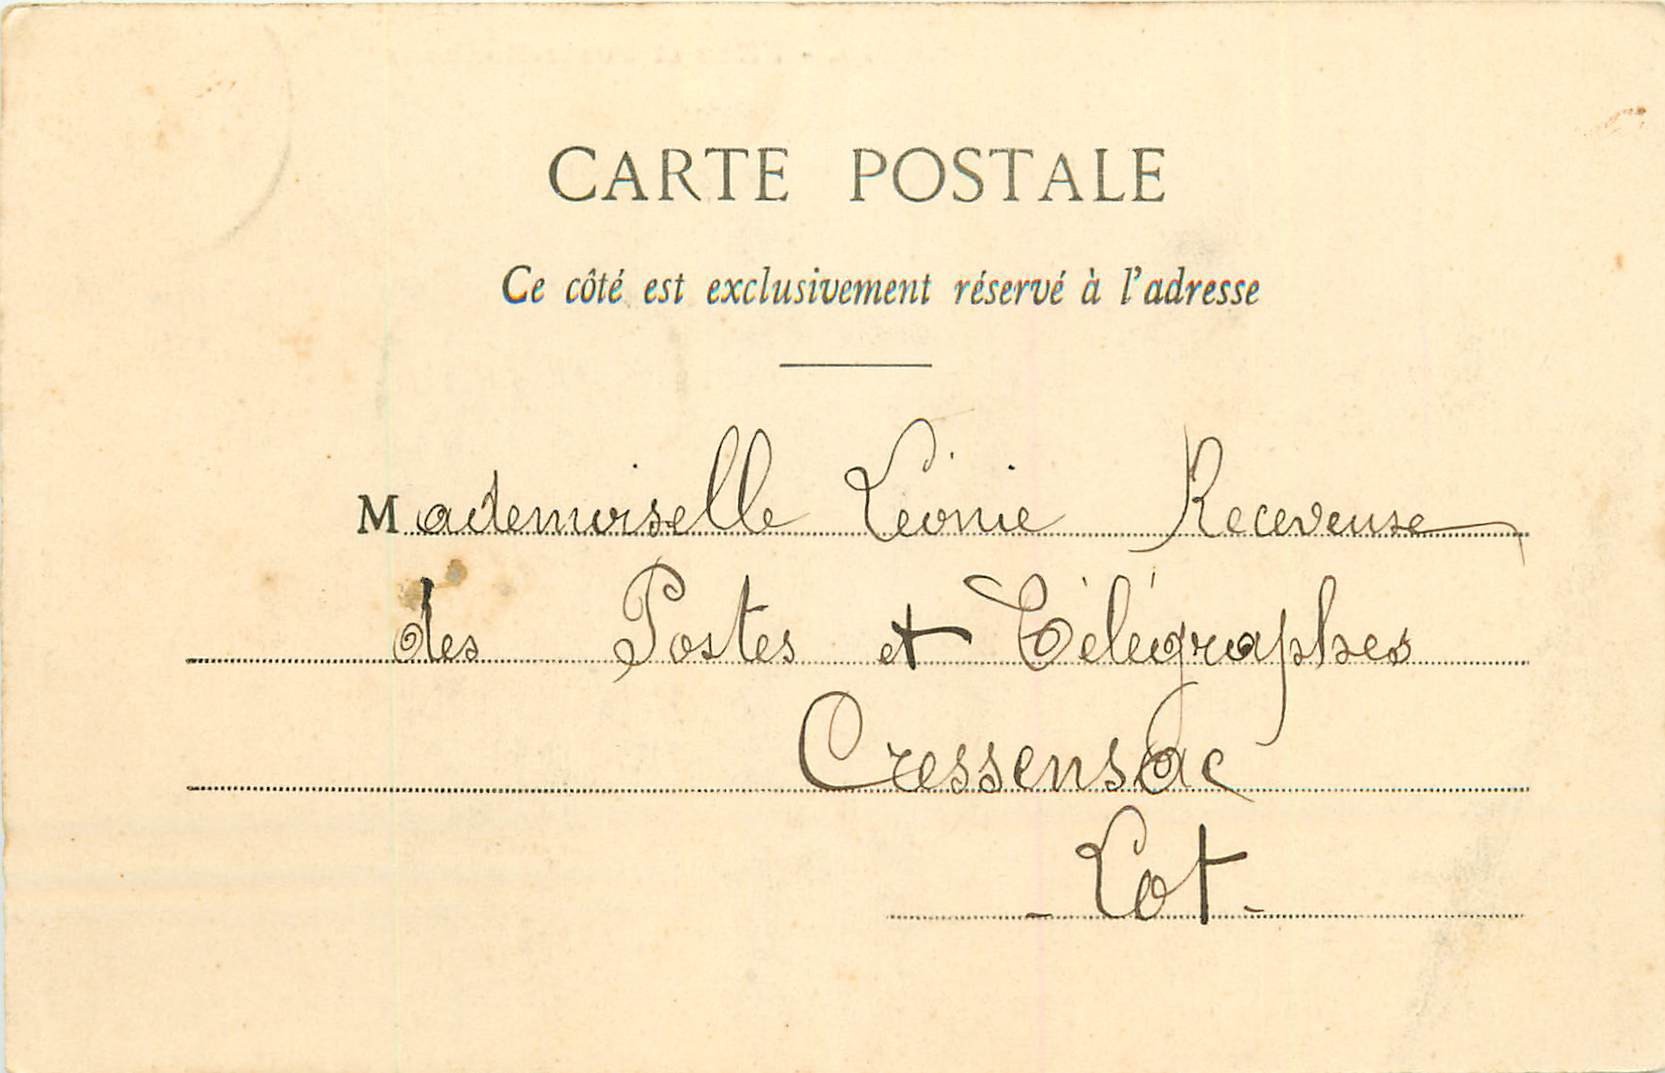 CARTE POSTALE
Ce côté est exclusivement réservé à l'adresse
Mademoiselle Léonie Receveuse
des Postes et Télégraphes
Cressensac
- Lot -